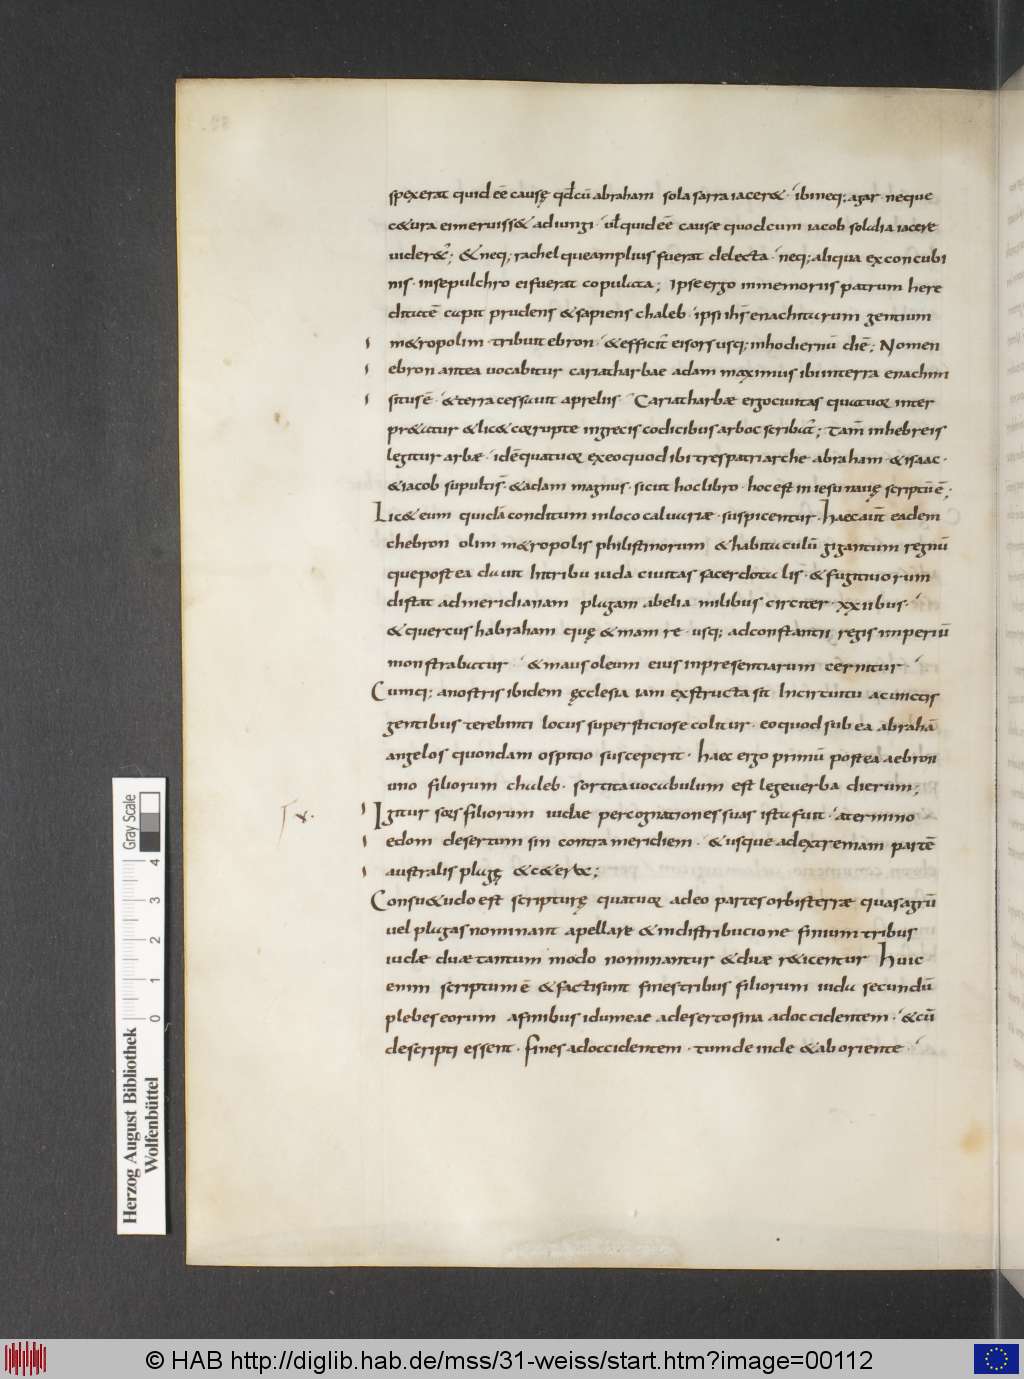 spexerat quid eē causę qd̄ cū abraham sola sarra iacer&· ibi neq; agar neque
c&ura ei meruiss& adiungi· vł quid eē causæ quod cum iacob sola lia iacere
uider&ͥ; & neq; rachel que amplius fuerat delecta· neq; aliqua ex concubi
nis· in sepulchro ei fuerat copulata; Ipse ergo in memoriis patrum here
ditatē cupit prudens & sapiens chaleb· ipsi ihs̄ enachitarum gentium
m&ropolim· tribuit ebron· & efficit̄ ei sors usq; in hodiernū diē; Nomen
ebron antea vocabitur cariatharbae adam maximus ibi in terra enachim
situs ē· & terra cessauit a prelus Cariatharbæ ergo ciuitas quatuor inter
pr&atur & lic& corrupte in grecis codicibus arboc scribat̄; Tam̄ in hebreis
legitur arbæ· idē quatuor ex eo quod ibi tres patriarche abraham· & isaac·
& iacob sepultis̄· & adam magnus· sicut hoc libro· hoc est in iesu nauę scriptū ē;
Lic& eum quidā conditum in loco caluariæ· suspicentur· haec aūt eadem
chebron olim m&ropolis philistinorum & habitaculū gigantum regnū
que postea dauit In tribu iuda ciuitas sacerdotalis̄· & fugitiuorum
distat ad meridianam plagam abelia milibus circiter· xxii bus·
& quercus habraham quę & mamre· usq; ad constantii regis imperiū
monstrabatur· & mausoleum eius in presentiarum cernitur·
Cumq; a nostris ibidem ęcclesia iam exstructa sit In circuitu a cunctis
gentibus terebinti locus supersticiose colitur· eo quod sub ea abrahā
angelos quondam ospitio susceperit· haec ergo primū postea aebron
uno filiorum chaleb· sortita uocabulum est lege uerba dierum;
x·
Igitur sors filiorum iudae per cognationes suas ista fuit· a termino
edom desertum sin contra meridiem· & usque ad extremam partē
australis plagę & c&er&;
Consu&udo est scripturę quatuor adeo partes orbis terræ quas agrū
uel plagas nominant apellare & in distribucione finium tribus
iudæ duæ tantum modo nominantur & duæ r&icentur Huic
enim scriptum ē & facti sunt fines tribus filiorum iuda secundū
plebes eorum a finibus idumeae a deserto sina ad occidentem· & cū
descripti essent· fines ad occidentem· tum deinde & ab oriente·
Herzog August Bibliothek
Wolfenbüttel
0 1 2 3 4
Gray Scale
© HAB http://diglib.hab.de/mss/31-weiss/start.htm?image=00112